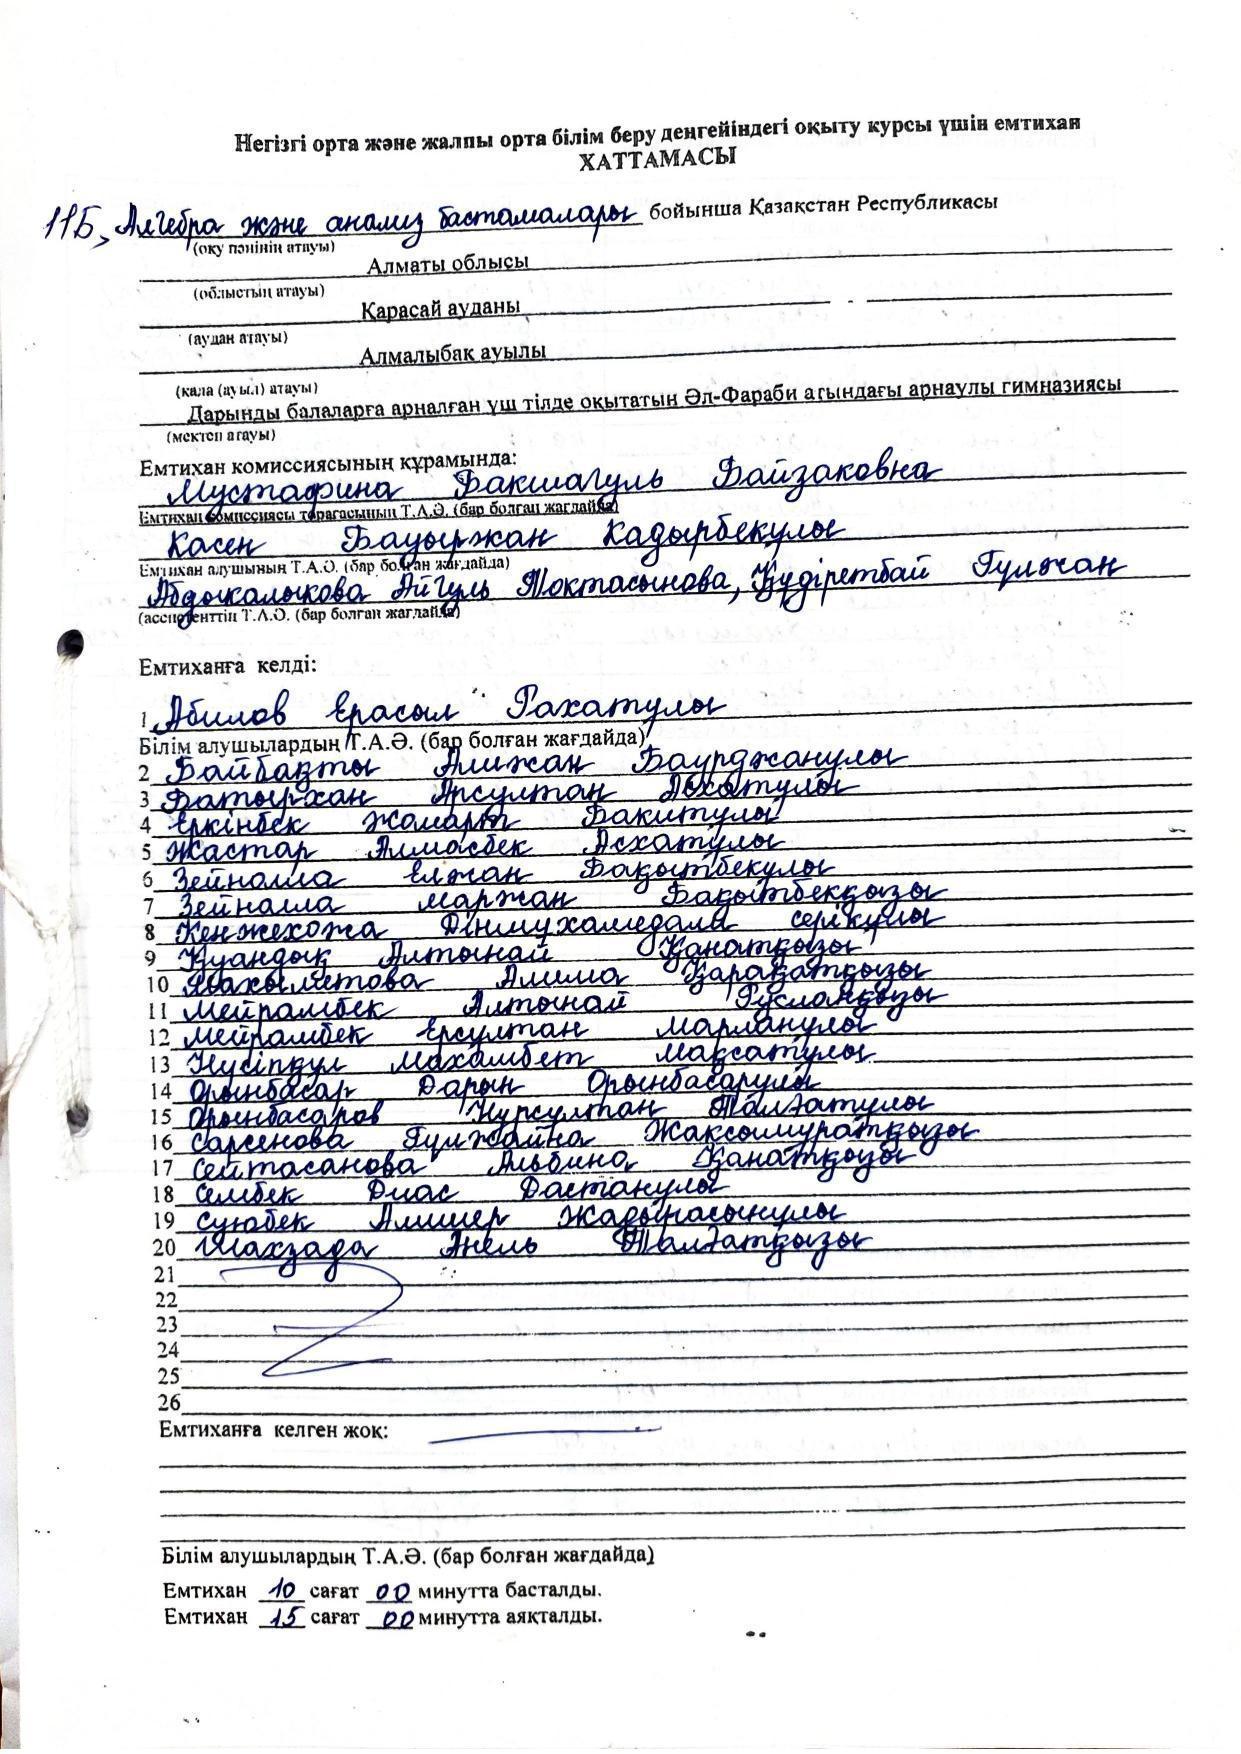 Негізгі орта және жалпы орта білім беру деңгейіндегі оқыту курсы үшін емтихан
ХАТТАМАСЫ
11Б, Алгебра және анализ бастамалары бойынша Қазақстан Республикасы
(оқу пәнінің атауы)
Алматы облысы
(облыстың атауы)
Қарасай ауданы
(аудан атауы)
Алмалыбақ ауылы
(қала (ауыл) атауы)
Дарынды балаларға арналған үш тілде оқытатын Әл-Фараби атындағы арнаулы гимназиясы
(мектеп атауы)
Емтихан комиссиясының құрамында:
Мустафина Бакшагуль Байзаковна
Емтихан комиссиясы төрағасының Т.А.Ә. (бар болған жағдайда)
Касен Бауыржан Кадырбекулы
Емтихан алушының Т.А.Ә. (бар болған жағдайда)
Абдыкалыкова Айгуль Токтасыновa, Құдіретбай Гүлжан
(ассистенттің Т.А.Ә. (бар болған жағдайда)
Емтиханға келді:
1 Абилов Ерасыл Рахатулы
Білім алушылардың Т.А.Ә. (бар болған жағдайда)
2 Байбақты Алижан Баурджанулы
3 Батырхан Арсултан Абхатулы
4 Еркінбек Жомарт Бакитулы
5 Жастар Алмасбек Асхатулы
6 Зейналла Елжан Бақытбекулы
7 Зейналла Маржан Бақытбекқызы
8 Кенжехожа Дінмухамедала Серікулы
9 Қуандық Алтынай Қанатқызы
10 Алима Қарақатқызы
11 Мейрамбек Алтынай Русланқызы
12 Мейрамбек Ерсултан Марланулы
13 Нүсіпқул Махамбет Мақсатулы
14 Орынбасар Дарын Орынбасарулы
15 Орынбасаров Нурсултан Талғатулы
16 Сарсенова Гүлжайна Жаксымуратқызы
17 Сейтасанова Альбина Қанатқызы
18 Сембек Диас Дастанулы
19 Суюбек Алишер
20 Шахзада Анель Талғатқызы
21
22
23
24
25
26
Емтиханға келген жоқ:
Білім алушылардың Т.А.Ә. (бар болған жағдайда)
Емтихан 10 сағат 00 минутта басталды.
Емтихан 15 сағат 00 минутта аяқталды.